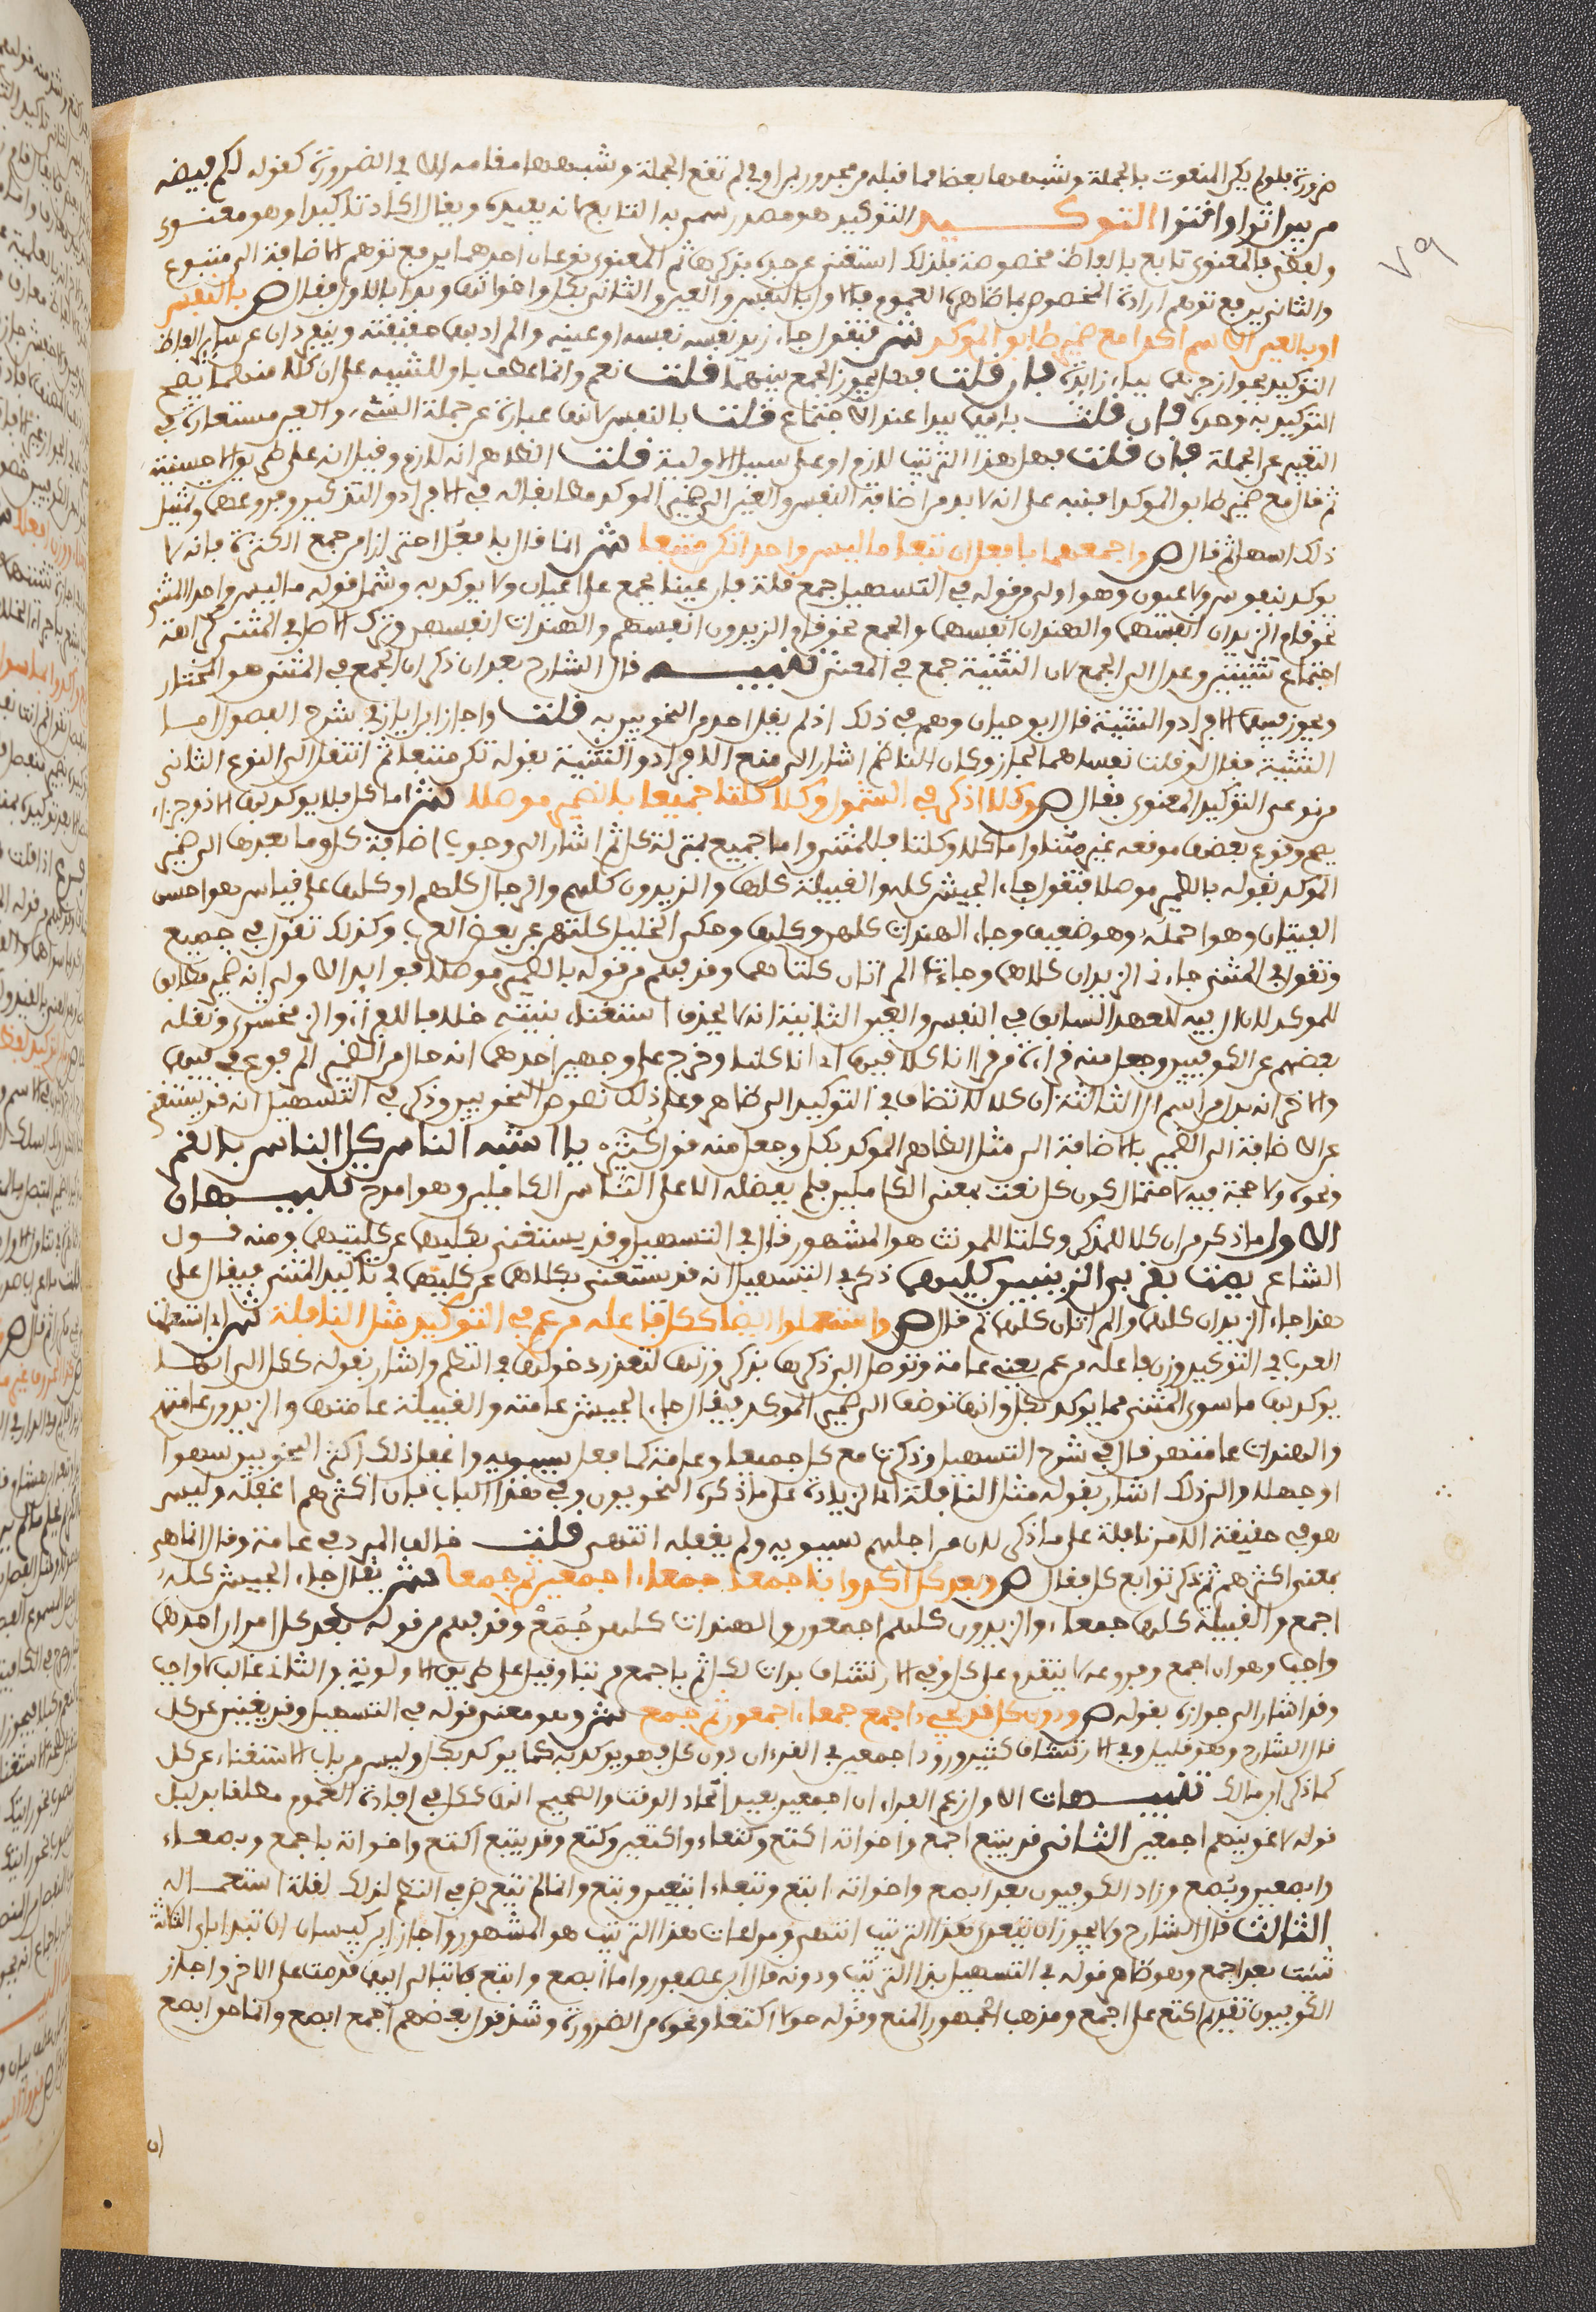 ضرورة فلو لم يكن المنعوت بالجملة وشبهها بعضا مما قبله من مجرور بمن او في لم تقع الجملة وشبهها مقامه الا في الضرورة كقوله لكم قبصه
من بين اثرا واقترا التوكيد التوكيد هو مصدر سمي به التابع لانه يفيده ويقال اكد تاكيدا وهو معنوي
ولفظي فالمعنوي تابع بالفاظ مخصوصة فلذلك استغنى عن حده بذكرها ثم المعنوي نوعان احدهما يرفع توهم الاضافة الى متبوع
والثاني يرفع توهم ارادة الخصوص بما ظاهره العموم فالاول بالنفس والعين والثاني بكل واخواتها وبدا بالاول فقال ص بالنفس
او بالعين الاسم اكدا مع ضمير طابق الموكدا ش فتقول جاء زيد نفسه او عينه والمراد بهما حقيقته وينفردان عن ساير الفاظ
التوكيد بجواز جرهما بباء زايدة فان قلت فهل يجوز الجمع بينهما قلت نعم وانما عطف باو للتنبيه على ان كلا منهما يصح
التوكيد به وحده فان قلت بايهما يبدا عند الاجتماع قلت بالنفس لانها عبارة عن جملة الشيء والعين مستعارة في
التعبير عن الجملة فان قلت فهل هذا الترتيب لازم او على سبيل الاولية قلت الظاهر انه لازم وقيل انه على طريق الاحسنية
ثم قال مع ضمير طابق الموكدا فنبه على انه لا بد من اضافة النفس والعين الى ضمير الموكد مطابقا له في الافراد والتذكير وفروعهما وتمثيل
ذلك سهل ثم قال ص واجمعهما بافعل ان تبعا ما ليس واحدا تكن متبعا ش انما قال بافعل احترازا من جمع الكثرة فانه لا
يوكد بنفوس ولا عيون وهو اولى من قوله في التسهيل جمع قلة فان عينا يجمع على اعيان ولا يوكد به وشمل قوله ما ليس واحدا المثنى
نحو قام الزيدان انفسهما والهندان انفسهما والجمع نحو قام الزيدون انفسهم والهندات انفسهن وترك الاصل في المثنى كراهة
اجتماع تثنيتين وعدل الى الجمع لان التثنية جمع في المعنى تنبيه قال الشارح بعد ان ذكر ان الجمع في المثنى هو المختار
ويجوز فيهما الافراد والتثنية قال ابو حيان وهم في ذلك اذ لم يقل احد من النحويين به قلت واجاز ابن اياز في شرح الفصول
التثنية فقال لو قلت نفساهما لجاز وكان الناظم اشار الى منع الافراد والتثنية بقوله تكن متبعا ثم انتقل الى النوع الثاني
من نوعي التوكيد المعنوي فقال ص وكلا اذكر في الشمول وكلا كلتا جميعا بالضمير موصلا ش اما كل فلا يوكد بها الا ذو اجزاء
يصح وقوع بعضها موقعه غير مثنى واما كلا وكلتا فللمثنى واما جميع بمنزلة كل ثم اشار الى وجوب اضافة كل وما بعدها الى ضمير
الموكد بقوله بالضمير موصلا فتقول جاء الجيش كله والقبيلة كلها والزيدون كلهم والرجال كلهم او كلها على قياس هو احسن
الفتيان وهو اجمله وهو ضعيف وجاء الهندات كلهن وكلها وحكى الخليل كلتهن عن بعض العرب وكذلك تقول في جميع
وتقول في المثنى جاءني الزيدان كلاهما وجاءت المراتان كلتاهما وقد فهم من قوله بالضمير موصلا فوايد الاولى انه ضمير مطابق
للموكد لان ال فيه للعهد السابق في النفس والعين الثانية انه لا يحذف استغناء بنيته خلافا للفراء والزمخشري ونقله
بعضهم عن الكوفيين وجعل منه قراءة من قرا انا كلا فيها اي انا كلنا وخرج على وجهين احدهما انه حال من الضمير المرفوع في فيها
والاخر انه بدل من اسم ان الثالثة ان كلا لا تضاف في التوكيد الى ظاهر وعلى ذلك نصوص النحويين وذكر في التسهيل انه قد يستغنى
عن الاضافة الى الضمير بالاضافة الى مثل الظاهر الموكد بكل وجعل منه قول كثير يا اشبه الناس كل الناس بالقمر
ونحوه ولا حجة فيه لاحتمال كون كل نعت بمعنى الكاملين فلم يفضله الا على الناس الكاملين وهو امدح تنبيهان
الاول ما ذكر من ان كلا للمذكر وكلتا للمونث هو المشهور قال في التسهيل وقد يستغنى بكليهما عن كلتيهما ومنه قول
الشاعر يمت بقربى الزينبين كليهما ذكر في التسهيل انه قد يستغنى بكلهما عن كليهما في تاكيد المثنى فيقال على
هذا جاء الزيدان كلهما والمراتان كلهما ثم قال ص واستعملوا ايضا ككل فاعله من عم في التوكيد مثل النافلة ش اي استعملت
العرب في التوكيد وزن فاعلة من عم يعني عامة وتوصل الى ذكرها بذكر وزنها لتعذر دخولها في النظم واشار بقوله ككل الى انها
يوكد بها ما سوى المثنى مما يوكد بكل وانها توضف الى ضمير الموكد فيقال جاء الجيش عامته والقبيلة عامتها والزيدون عامتهم
والهندات عامتهن قال في شرح التسهيل وذكرت مع كل جميعا وعامة كما فعل سيبويه واغفل ذلك اكثر النحويين سهوا
او جهلا والى ذلك اشار بقوله مثل النافلة اي الزيادة على ما ذكره النحويون وفي هذا الباب فان اكثرهم اغفله وليس
هو في حقيقة الامر نافلة على ما ذكر لان من اجلهم سيبويه ولم يغفله انتهى قلت خالف المبرد في عامة وقال انما هي
بمعنى اكثرهم ثم ذكر توابع كل فقال ص وبعد كل اكدوا باجمعا جمعاء اجمعين ثم جمعا ش يقال جاء الجيش كله
اجمع والقبيلة كلها جمعاء والزيدون كلهم اجمعون والهندات كلهن جُمَعْ وقد فهم من قوله بعد كل امران احدهما
واجب وهو ان اجمع وفروعه لا يتقدم على كل وفي الارتشاف
وقد اشار الى جوازه بقوله ص ودون كل قد يجيء اجمع جمعاء اجمعون ثم جمع ش وهو معنى قوله في التسهيل وقد يغنين عن كل
قال الشارح وهو قليل وفي الارتشاف كثير ورود اجمعين في القرءان دون كل فهو يوكد به كما يوكد بكل وليس من باب الاستغناء عن كل
كما ذكر ابن مالك تنبيهات الاول زعم الفراء ان اجمعين يفيد اتحاد الوقت والصحيح انها ككل في افادة العموم مطلقا بدليل
قوله لاغوينهم اجمعين الثاني قد يتبع اجمع واخواته اكتع وكتعاء واكتعين وكتع وقد يتبع اكتع واخواته بابصع وبصعاء
وابصعين وبُصع وزاد الكوفيون بعد ابصع واخواته ابتع وبتعاء ابتعين وبتع وانما لم يتعرض في النظم لذلك لقلة استعماله
الثالث قال الشارح ولا يجوز ان يتعدى هذا الترتيب انتهى ومراعات هذا الترتيب هو المشهور واجاز ابن كيسان ان تبدا باي الثلاث
شيت بعد اجمع وهو ظاهر قوله في التسهيل بهذا الترتيب ودونه قال ابن عصفور واما ابصع وابتع فلا تبالي ايهما قدمت على الاخر واجاز
الكوفيون تقديم اكتع على اجمع ومذهب الجمهور المنع وقوله حولا اكتعا ونحوه من الضرورة وشذ قول بعضهم اجمع ابصع وانما حق ابصع
٧٩